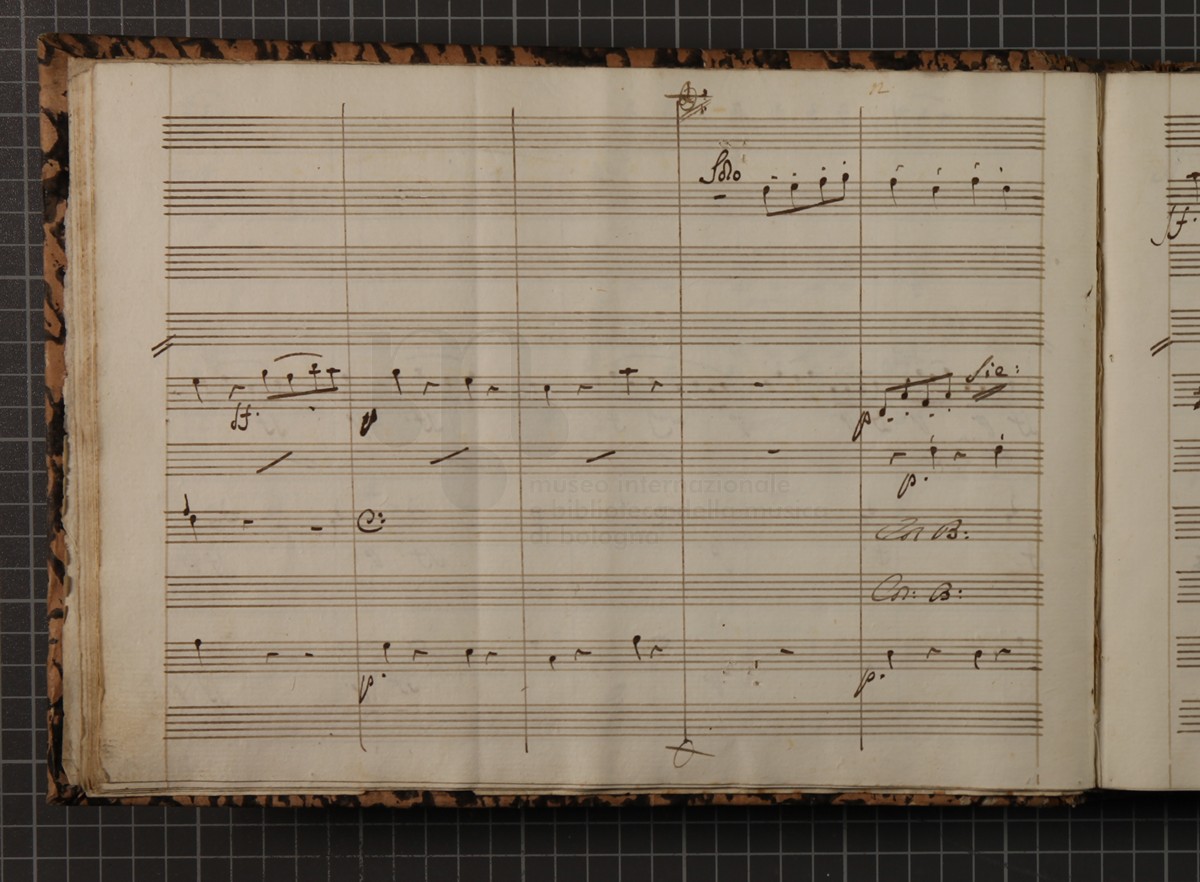 12
Solo
ff.
ff.
p
Sie:
p
p.
museo internazionale
e biblioteca della musica
di bologna
Con B:
Con: B:
p.
p.